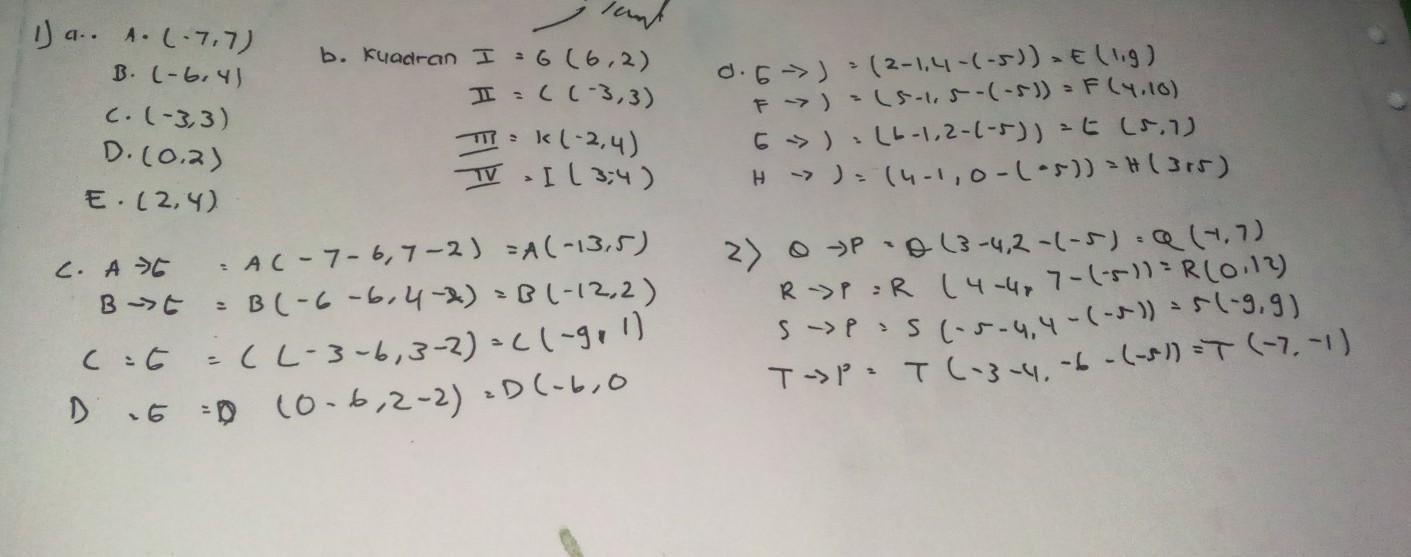 1) a.. A. (-7,7)
B. (-6,4)
C. (-3,3)
D. (0,2)
E. (2,4)
b. Kuadran I = G (6,2)
II = C (-3,3)
III = K (-2,4)
IV = I (3,4)
C. A → G = A (-7-6, 7-2) = A (-13,5)
B → G = B (-6-6, 4-2) = B (-12,2)
C = G = C (-3-6, 3-2) = C (-9, 1)
D = G = D (0-6, 2-2) = D (-6,0
d. E → J = (2-1, 4-(-5)) = E (1,9)
F → J = (5-1, 5-(-5)) = F (4,10)
G → J = (6-1, 2-(-5)) = G (5,7)
H → J = (4-1, 0-(-5)) = H (3,5)
2) Q → P = Q (3-4, 2-(-5) = Q (-1, 7)
R → P = R (4-4, 7-(-5)) = R (0,12)
S → P = S (-5-4, 4-(-5)) = S (-9,9)
T → P = T (-3-4, -6-(-5)) = T (-7,-1)